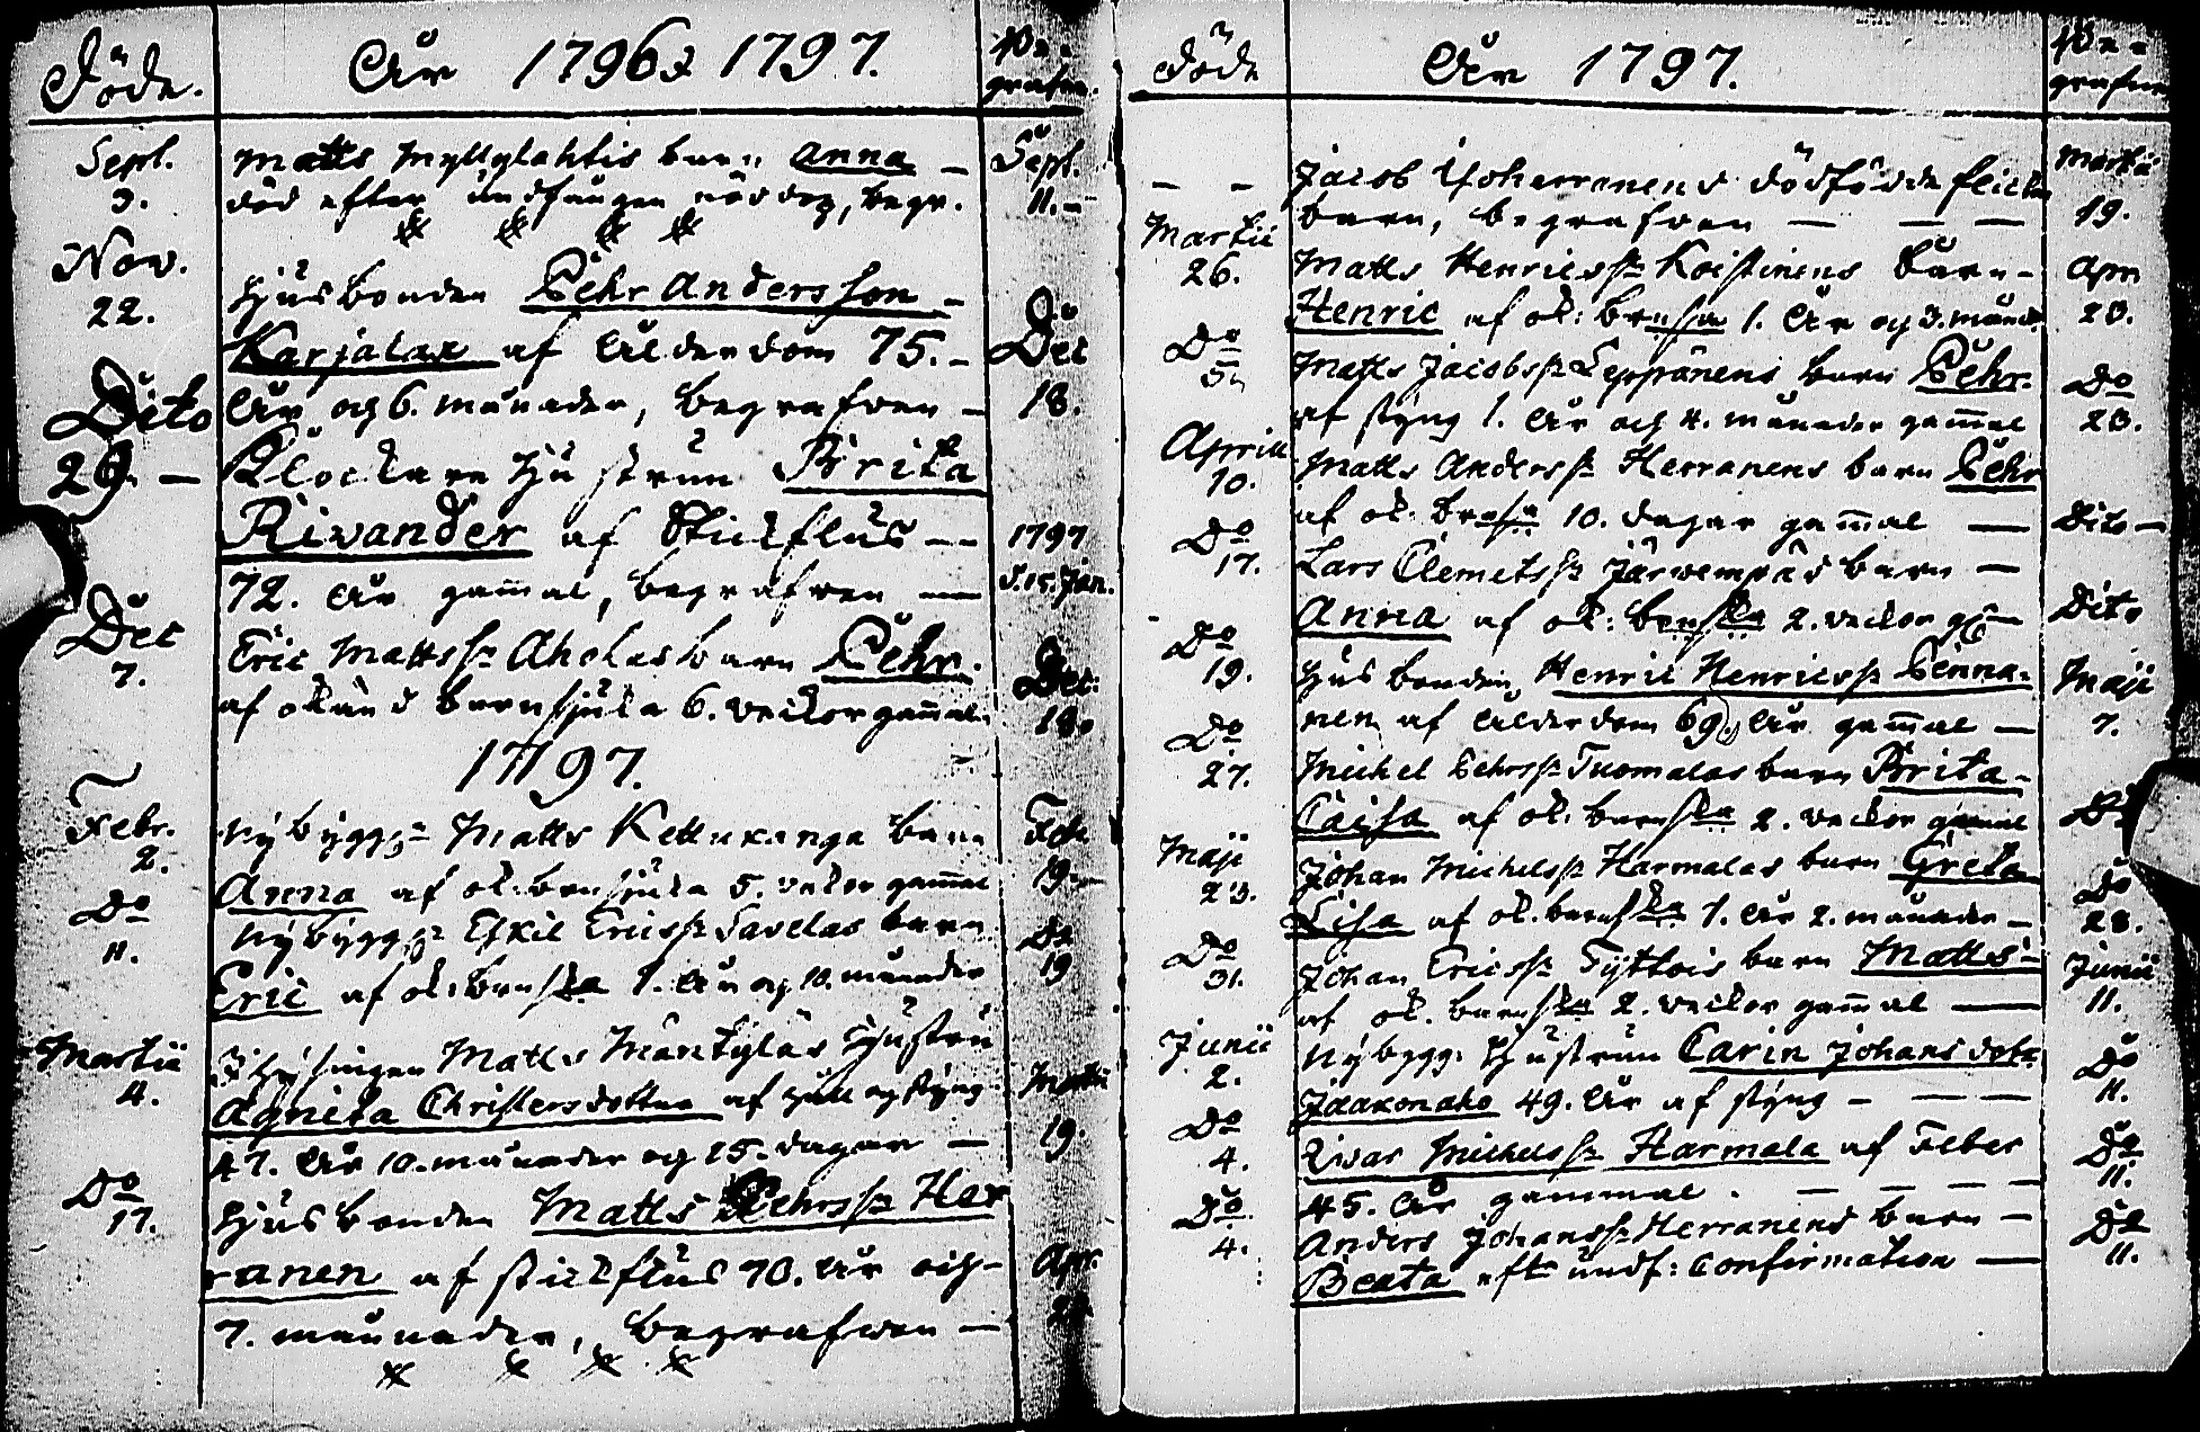 Döde. År 1796 & 1797. Be-
grafne.
Sept. Matts Myllylahtis barn Anna — Sept.
3. död efter undfången nöddop, begr. 11. —
Nov.
22. Husbonden Pehr Andersson —
Karjalax af Ålderdom 75. — Dec
År och 6. månader, begrafven — 18.
Dito
29. — Klockare Hustrun Brita
Rivander af Stickflus — 1797
72. År gam̄al, begrafven — d. 15. Jan.
Dec Eric Mattss:n Aholas barn Pehr. Dec:
7. af okänd barnsjuka 6. veckor gam̄al. 18.
1797.
Febr. Nybygg: Matts Kettukanga barn Feb
2. Anna af ok: barnsjuka 5. vekor gam̄al 19. —
Do Nybygg: Eskil Ericss:n Savelas barn Do
11. Eric af ok: barnska 1. År och 10. månader 19
Martii Inhysingen Matts Mäntyläs Hustru
4. Agneta Christersdotter af håll och styng Martii
47. År 10. månader och 25. dagar — 19.
Do
17. Husbonden Matts Pehrss:n Her
ranen af stickflus 70. År och — Apr.
7. månader, begrafven —
Döde År 1797. Be-
grafne
— — Jacob Herranens dödfödde flicke Martii
barn, begrafven — — — 19.
Martii
26. Matts Henricss:n Koistinens barn — Apr.
Henric af ok: barnska 1. År och 3. månad. 23.
Do Matts Jacobss:n Leppänens barn Pehr. Do
af styng 1. År och 4. månader gam̄al 23.
Aprill
10. Matts Anderss:n Herranens barn Pehr
af ok. barnska 10. dagar gam̄al — Dito —
Do
17. Lars Clemetss:n Järvenpäs barn —
Anna af ok: barnska 2. veckor Dito
Do
19. Husbonden Henric Henricss:n Penna- Maji
nen af ålderdom 69. År gam̄al — 7.
Do
27. Michel Pehrss:n Tuomalas barn Brita —
Caisa af ok. barnska 2. veckor gam̄al Do
Maji
23. Johan Michelss:n Harmalas barn Greta Do
Lisa af ok. barnska 1. År 2. månader — 28.
Do
31. Johan Ericss:n Tyttois barn Matts — Junii
af ok. barnska 2. veckor gam̄al — 11.
Junii
2. Nybygg. Hustrun Carin Johansdotr Do
Jaakonaho 49. År af styng — — — 11.
Do
4. Ivar Michelss:n Harmala af Feber Do
45. År gammal. — — — — 11.
Do
4. Anders Johanss:n Herranens barn — Do
Beata eftr undf: Confirmation — 11.